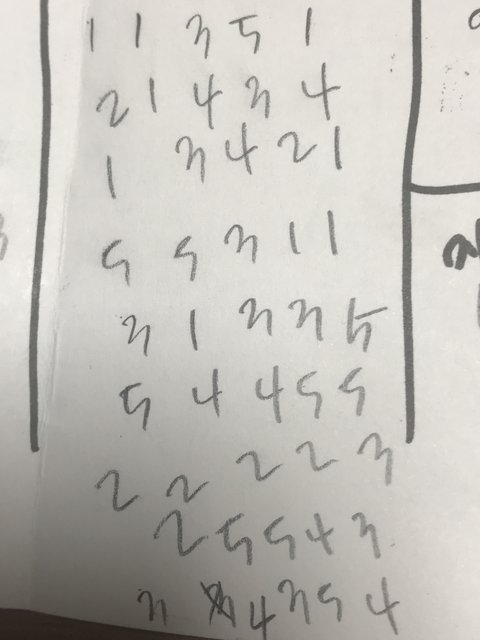 1 1 3 5 1
2 1 4 3 4
1 3 4 2 1
5 5 3 1 1
3 1 3 3 5
5 4 4 5 5
2 2 2 2 3
2 5 5 4 3
3 4 3 5 4